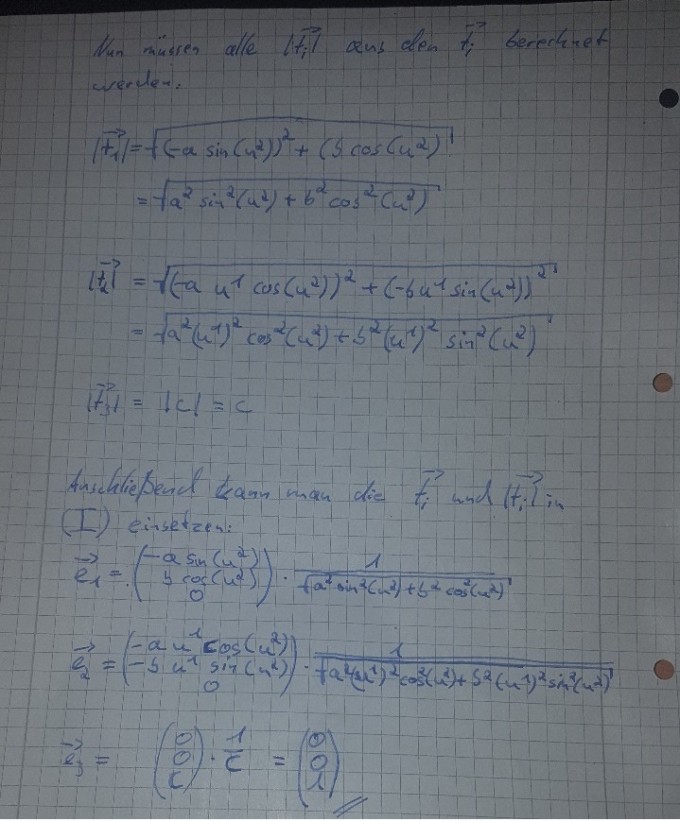 Nun müssen alle |t⃗ᵢ| aus den t⃗ᵢ berechnet
werden:
|t⃗₁| = √((-a sin(u²))² + (b cos(u²))
= √(a² sin²(u²) + b² cos²(u²))
|t⃗₂| = √((-a u¹ cos(u²))² + (-b u¹ sin(u²))²)
= √(a²(u¹)² cos²(u²) + b²(u¹)² sin²(u²))
|t⃗₃| = |c| = c
Anschließend kann man die t⃗ᵢ und |t⃗ᵢ| in
(I) einsetzen:
e⃗₁ = (-a sin(u²), b cos(u²), 0) · 1/√(a² sin²(u²) + b² cos²(u²))
e⃗₂ = (-a u¹ cos(u²), -b u¹ sin(u²), 0) · 1/√(a²(u¹)² cos²(u²) + b²(u¹)² sin²(u²))
e⃗₃ = (0, 0, c) · 1/c = (0, 0, 1)